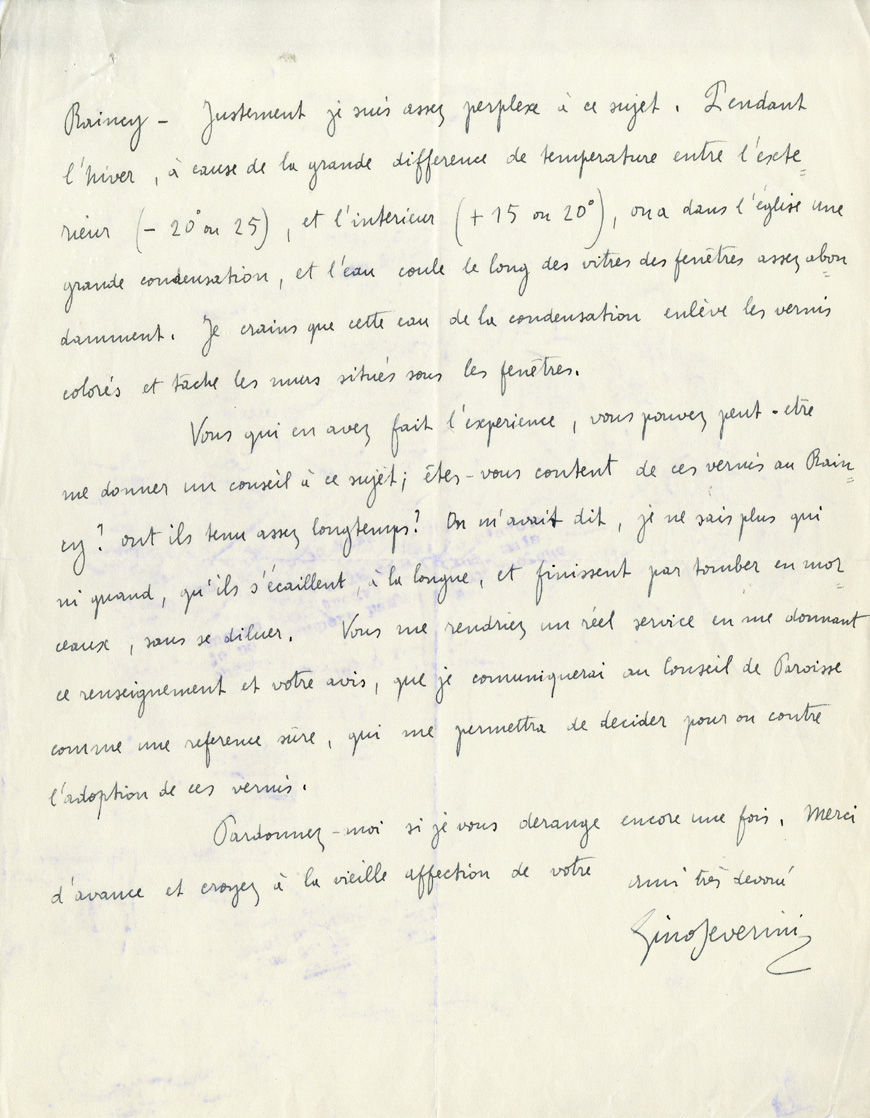 Raincy – Justement je suis assez perplexe à ce sujet. Pendant
l'hiver, à cause de la grande difference de temperature entre l'exte=
rieur (- 20° ou 25), et l'interieur (+ 15 ou 20°), on a dans l'église une
grande condensation, et l'eau coule le long des vitres des fenêtres assez abon=
damment. Je crains que cette eau de la condensation enlève les vernis
colorés et tâche les murs situés sous les fenêtres.
Vous qui en avez fait l'experience, vous pouvez peut-etre
me donner un conseil à ce sujet; êtes-vous content de ces vernis au Rain=
cy? ont ils tenu assez longtemps? On m'avait dit, je ne sais plus qui
ni quand, qu'ils s'écaillent, à la longue, et finissent par tomber en mor=
ceaux, sans se diluer. Vous me rendriez un réel service en me donnant
ce renseignement et votre avis, que je comuniquerai au Conseil de Paroisse
comme une reference sûre, qui me permettra de decider pour ou contre
l'adoption de ces vernis.
Pardonnez-moi si je vous derange encore une fois. Merci
d'avance et croyez à la vieille affection de votre ami très devoué
Gino Severini